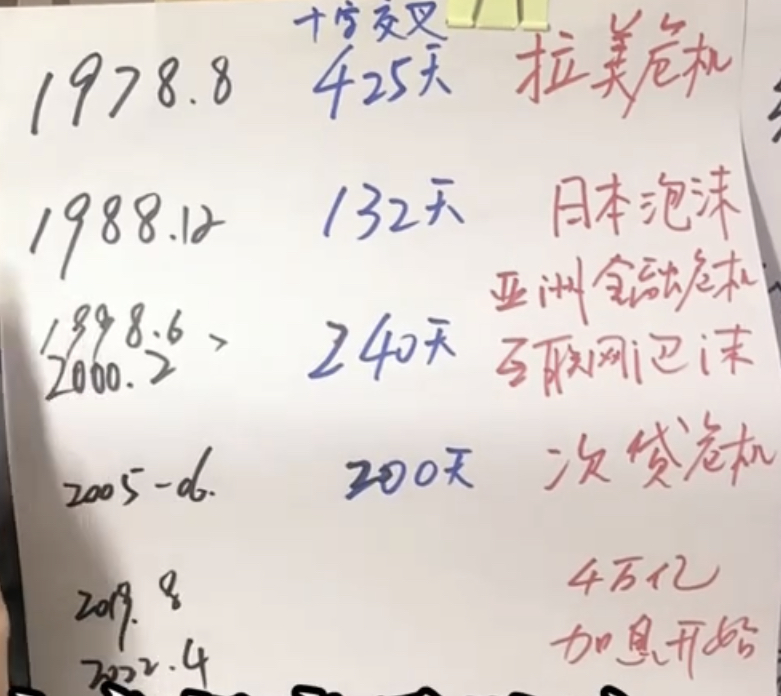 十字交叉
1978.8 425天 拉美危机
1988.12 132天 日本泡沫
亚洲金融危机
1998.6
2000.2 240天 互联网泡沫
2005-06. 200天 次贷危机
2019.8 4万亿
2022.4 加息开始